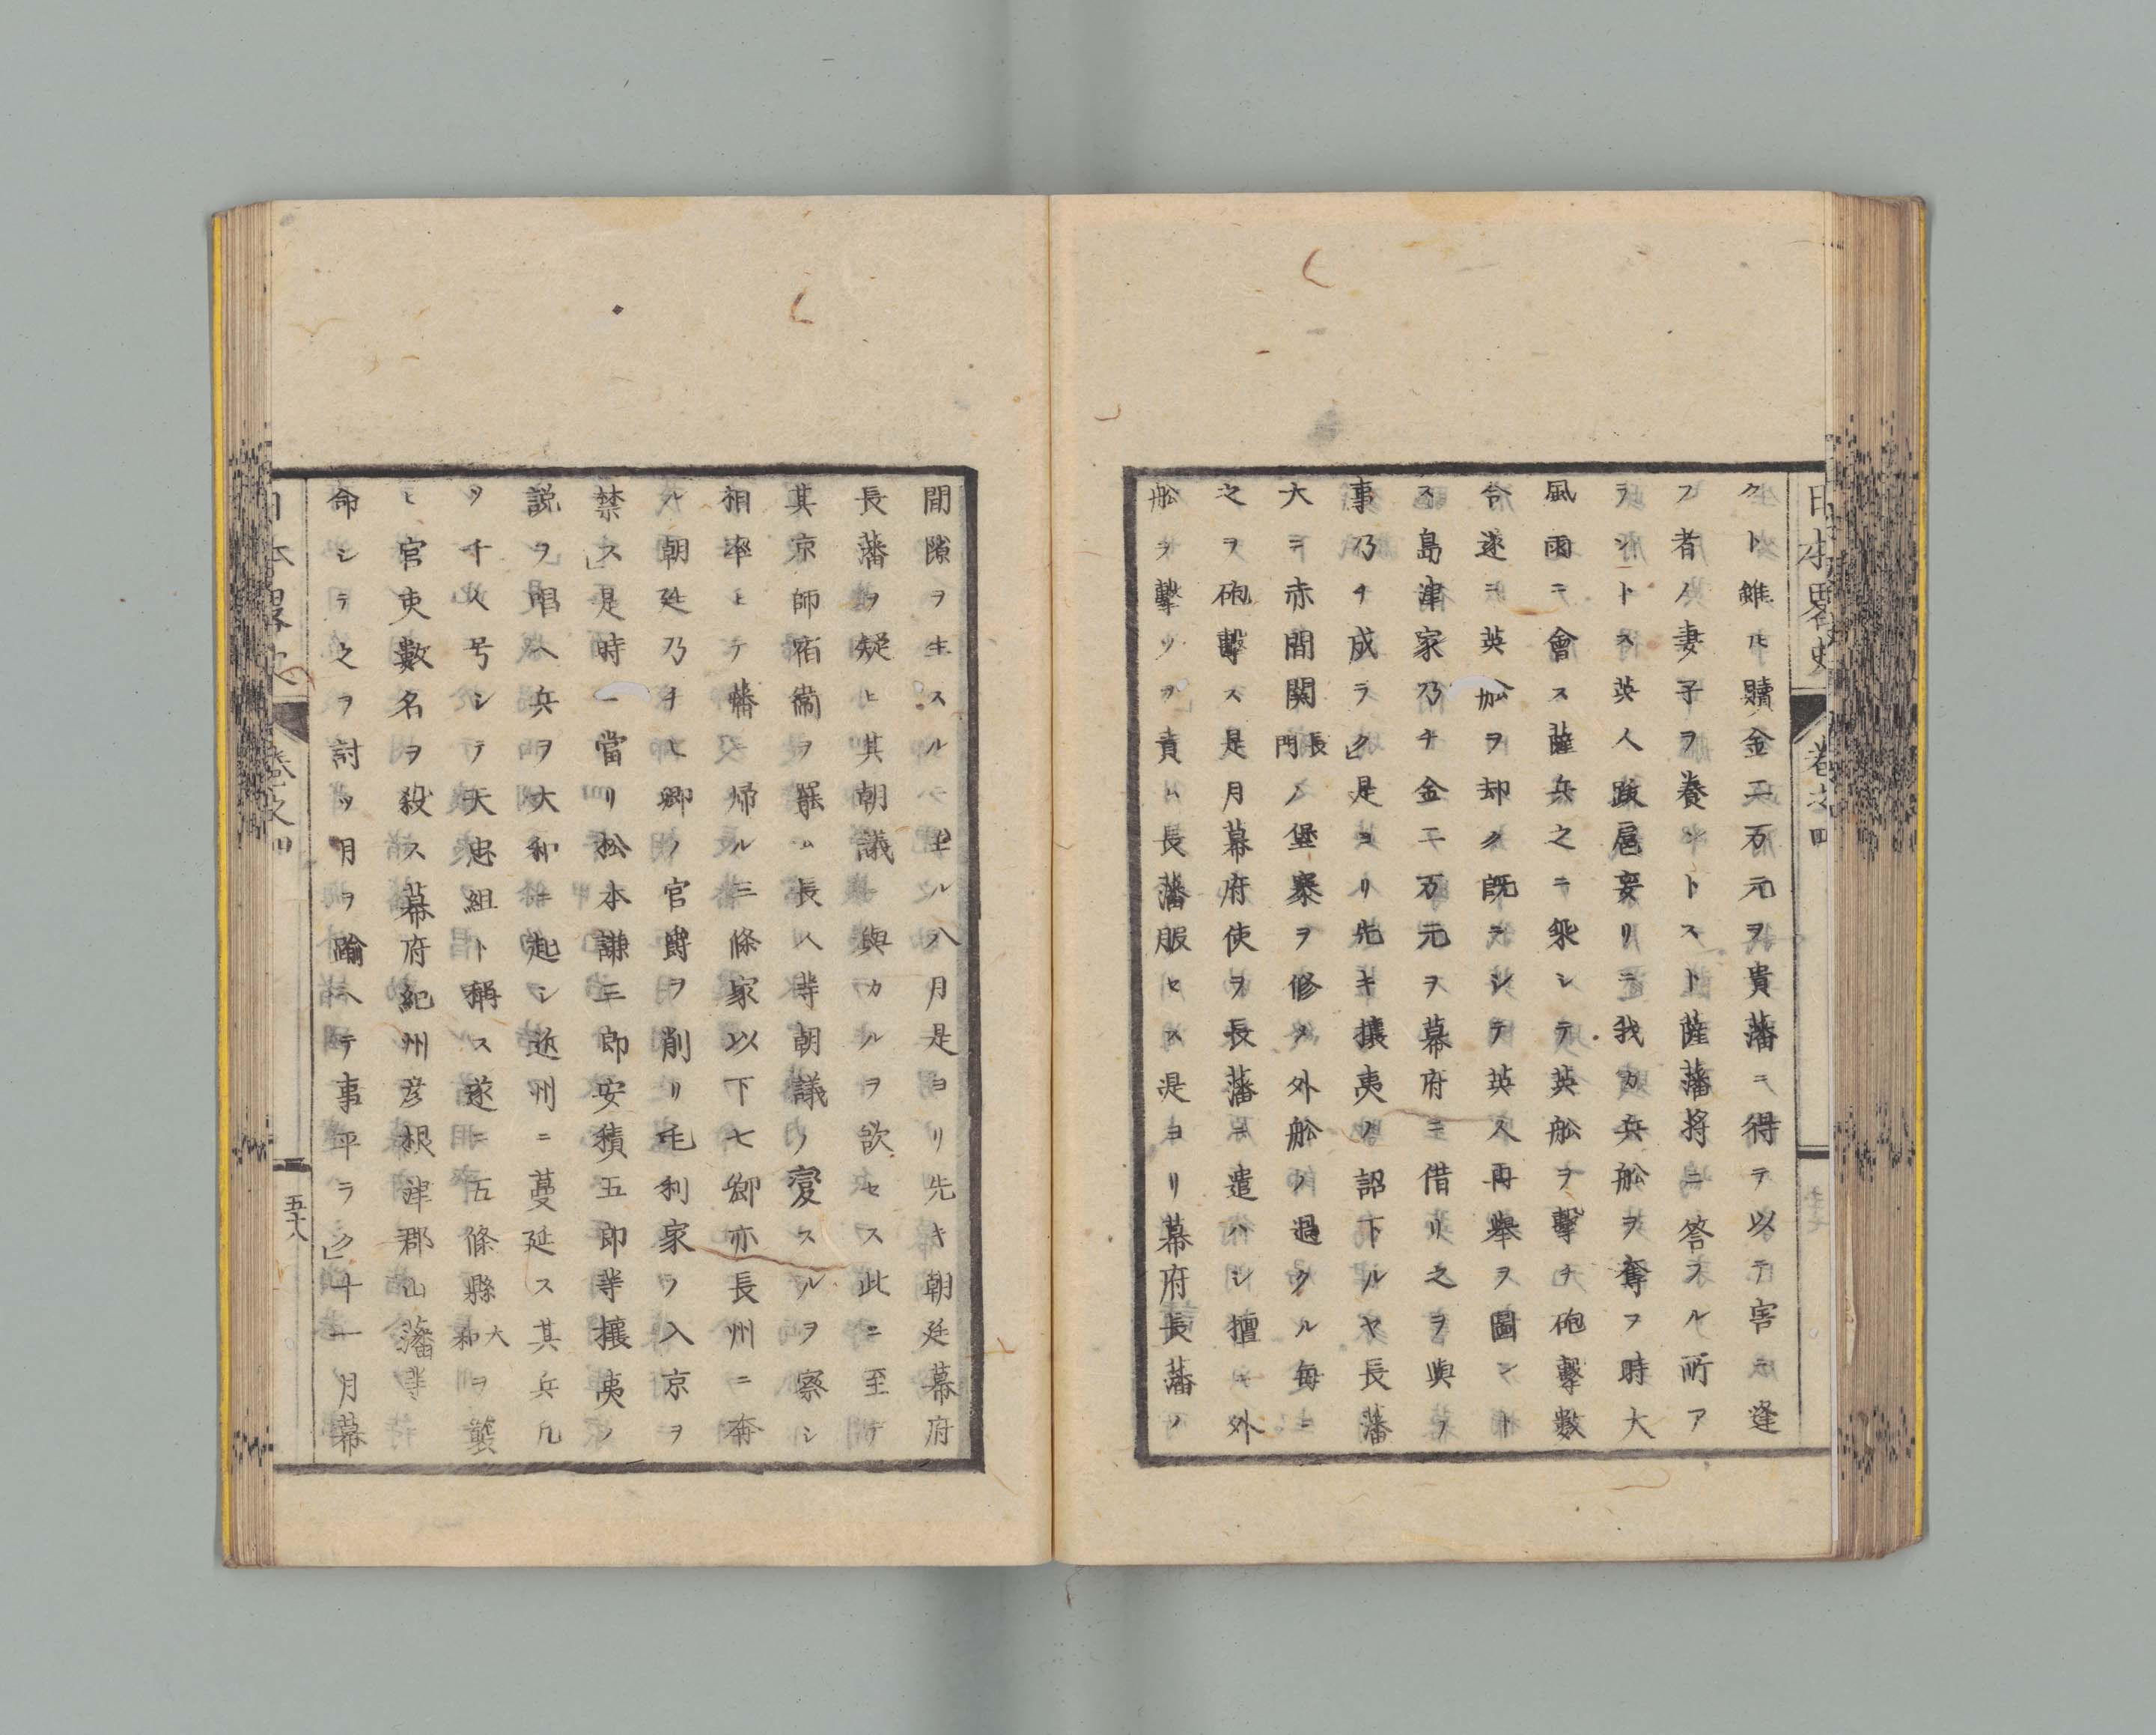 日本畧史 卷之四
クト雖ヒ贖金二万元ヲ貴藩ニ得テ以テ害ニ逢
フ者ノ妻子ヲ養ントスト薩藩将ニ答フル所ア
ラントス英人跋扈妄リニ我カ兵舩ヲ奪フ時大
風雨ニ會ス薩兵之ニ乘シテ英舩ヲ擊チ砲擊數
令遂ニ英舩ヲ却ク既ニシテ英人再舉ヲ圖ント
ス島津家乃チ金二万元ヲ幕府ニ借リ之ヲ與ヘ
事乃チ成ラク是ヨリ先キ攘夷ノ詔下ルヤ長藩
大ニ赤間関長門ノ堡寨ヲ修メ外舩ノ過クル毎ニ
之ヲ砲擊ス是月幕府使ヲ長藩ニ遣ハシ擅ニ外
舩ヲ擊ツヲ責ム長藩服セス是ヨリ幕府長藩ノ
間隙ヲ生スルニ至ル八月是ヨリ先キ朝廷幕府
長藩ヲ疑ヒ其朝議ニ與カルヲ欲セス此ニ至テ
其京師宿衞ヲ罷ム長人等朝議ノ変スルヲ察シ
相率ヒテ藩ニ帰ル三條家以下七卿亦長州ニ奔
ル朝廷乃チ七卿ノ官爵ヲ削リ毛利家ノ入京ヲ
禁ス是時ニ當リ松本謙三郎安積五郎等攘夷ノ
説ヲ唱ヘ兵ヲ大和ニ起シ近州ニ蔓延ス其兵凡
ソ千人号シテ天忠組ト稱ス遂ニ五條縣大和ヲ襲
ヒ官吏數名ヲ殺ス幕府紀州彦根津郡山藩等
命シテ之ヲ討ツ月ヲ踰ヘテ事平ラク十一月幕
日本畧史 卷之四 五十八